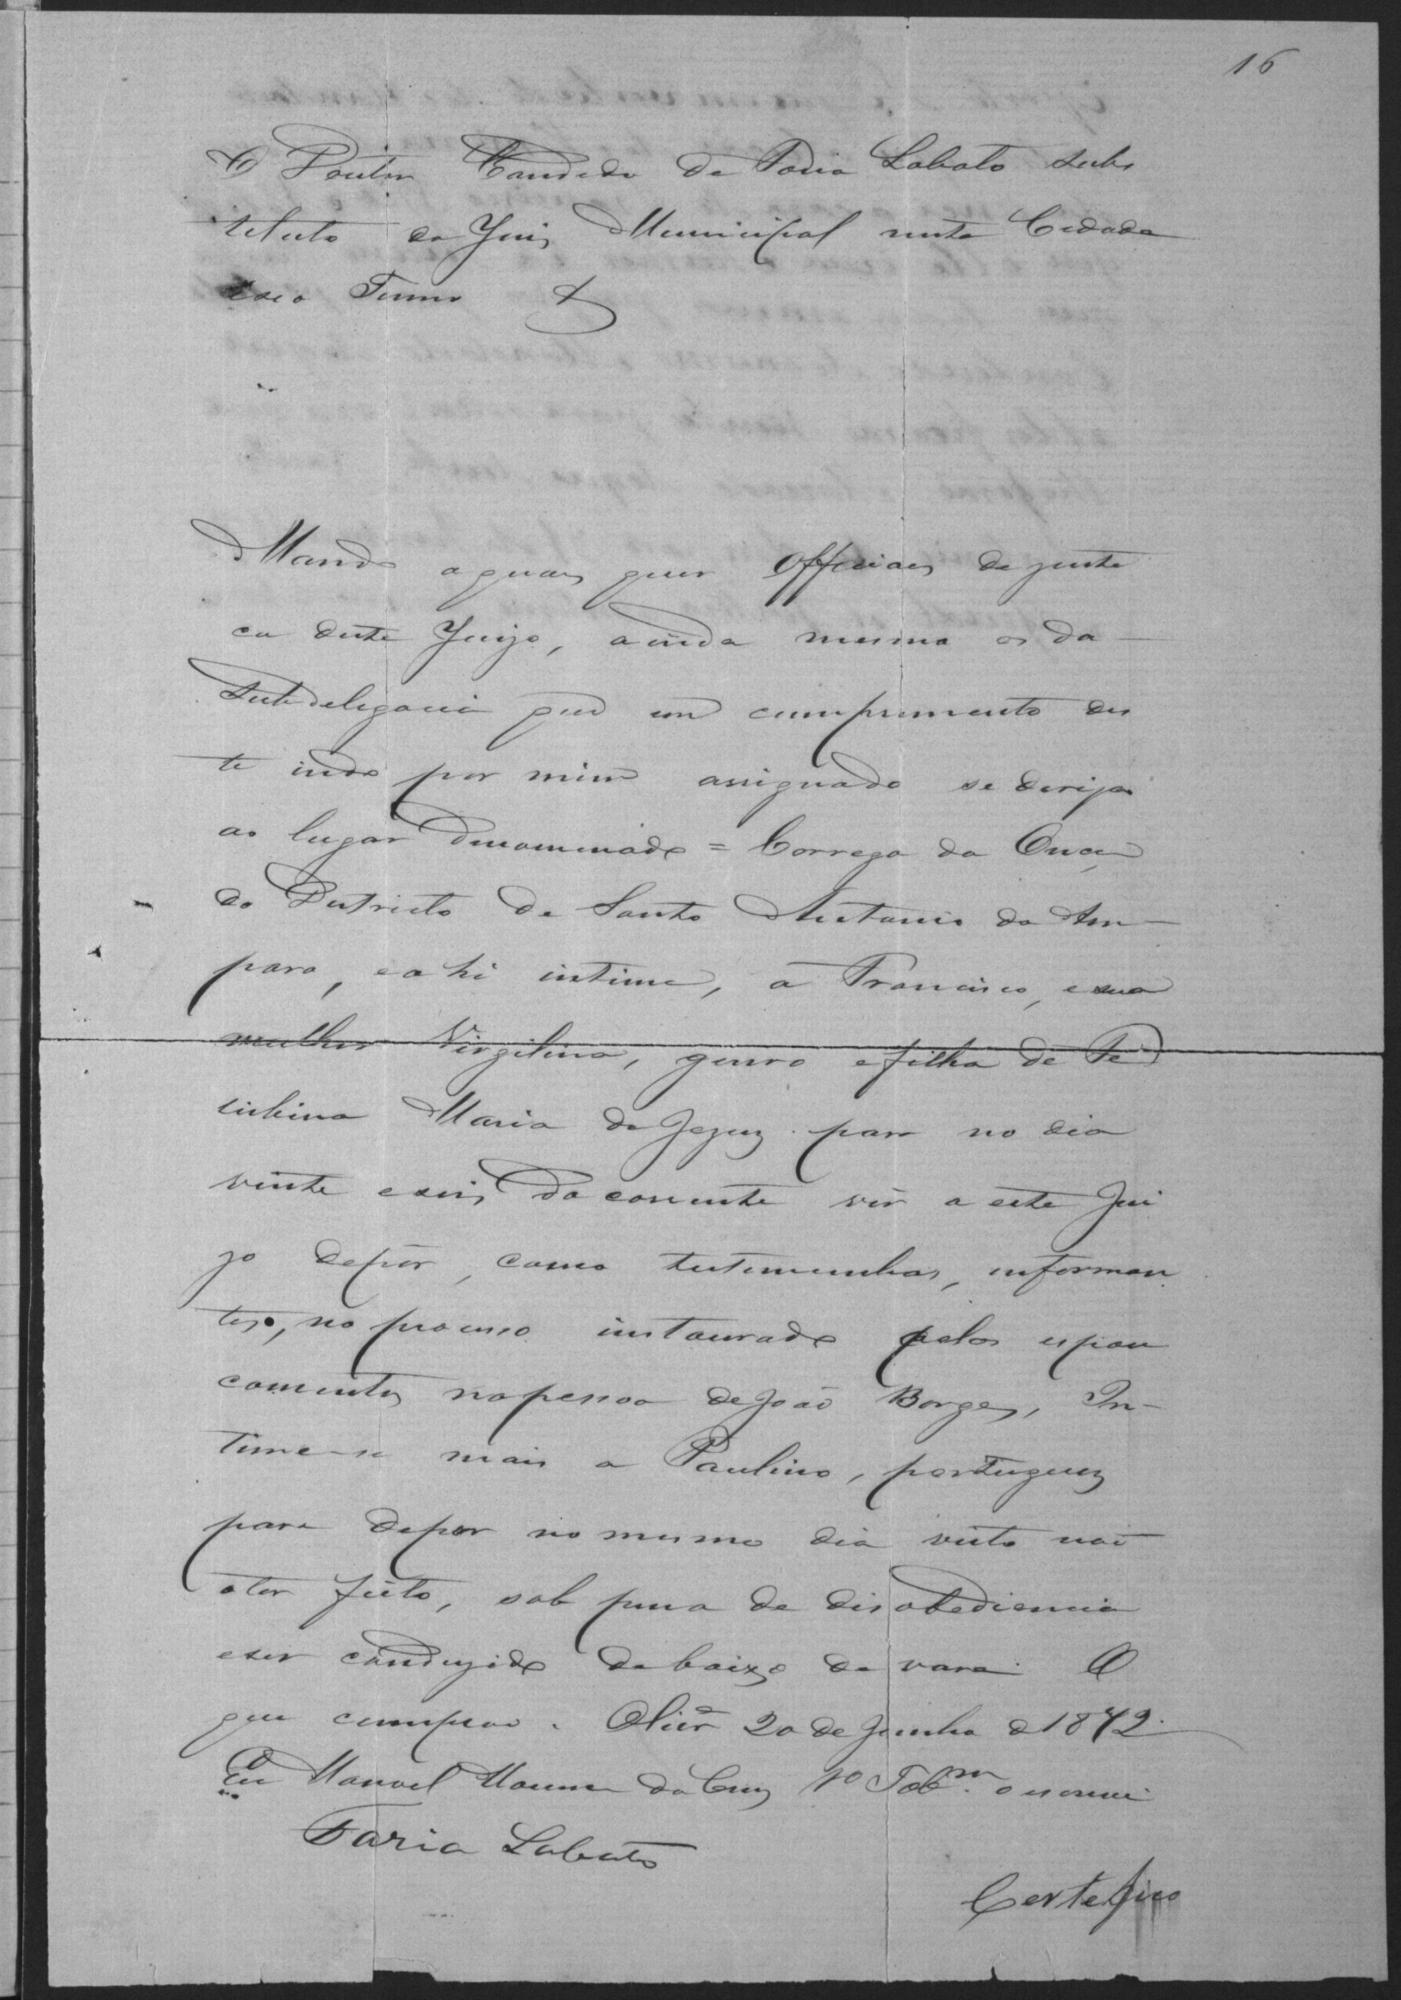 16
O Doutor Candido de Faria Lobato subs
tituto do Juis Municipal nesta Cidade
e seo Termo &
Mando a quaes quer Officiaes de justi
ca deste Juizo, ainda mesmo os da
Subdelegacia que em cumprimento des
te indo por mim assignado se dirija
ao lugar denominado = Corrego da Onça
do Districto de Santo Antonio do Am-
paro, e ahi intime, a Francisco, e sua
mulher Virgilina, genro e filha de Fe
lisbina Maria de Jezuz para no dia
vinte e seis do corrente vir a este Jui
zo depôr, como testemunhas, informan
tes, no processo instaurado pelos espan
camentos na pessoa de João Borges, In-
time-se mais a Paulino, portuguez
para depor no mesmo dia visto não
o ter feito, sob pena de disobediencia
e ser conduzido debaixo de vara. O
que cumprão. Olivrª 20 de Junho de 1872.
Eu Manoel da Cruz 1º Tabm o escrevi
Faria Lobato
Certefico